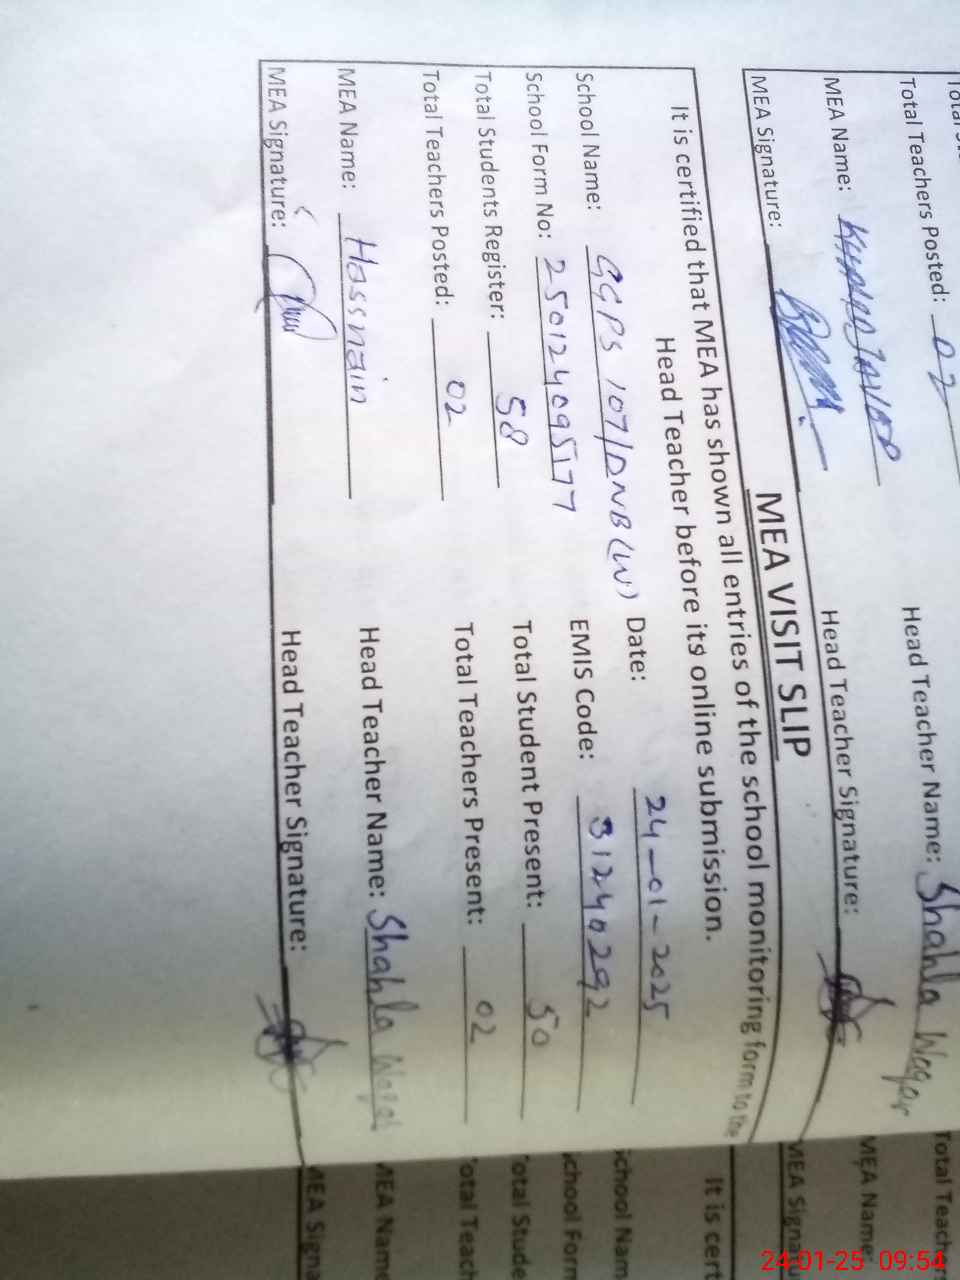 Total Teachers Posted: 02 Head Teacher Name: Shahla Waqar
MEA Name: Head Teacher Signature:
MEA Signature:
MEA VISIT SLIP
It is certified that MEA has shown all entries of the school monitoring form to the
Head Teacher before its online submission.
School Name: GGPS 107/DNB (W) Date: 24-01-2025
School Form No: 250124095177 EMIS Code: 31240292
Total Students Register: 58 Total Student Present: 50
Total Teachers Posted: 02 Total Teachers Present: 02
MEA Name: Hassnain Head Teacher Name: Shahla Waqar
MEA Signature: Head Teacher Signature:
Total Teachers
MEA Name:
MEA Signatu
It is cert
School Nam
School Form
Total Stude
Total Teach
MEA Name
MEA Signa
24-01-25 09:54